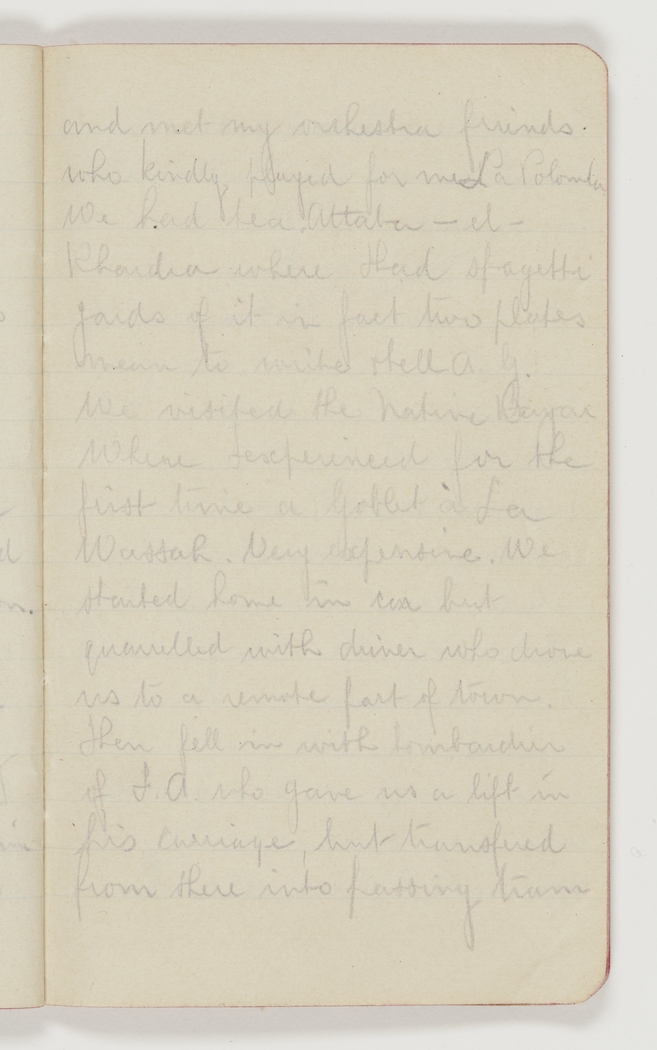 and met my orchestra friends.
who kindly played for me La Polomba
We had tea. Attaba - el -
Khadra where I had spagetti
yards of it in fact two plates
mean to write tell A. G.
We visited the Native Bazar
Where I experienced for the
first time a Goblet à La
Wassah. Very expensive. We
started home in car but
quarrelled with driver who drove
us to a remote part of town.
Then fell in with bombardier
of F.A. who gave us a lift in
his carriage, but transfered
from there into passing tram